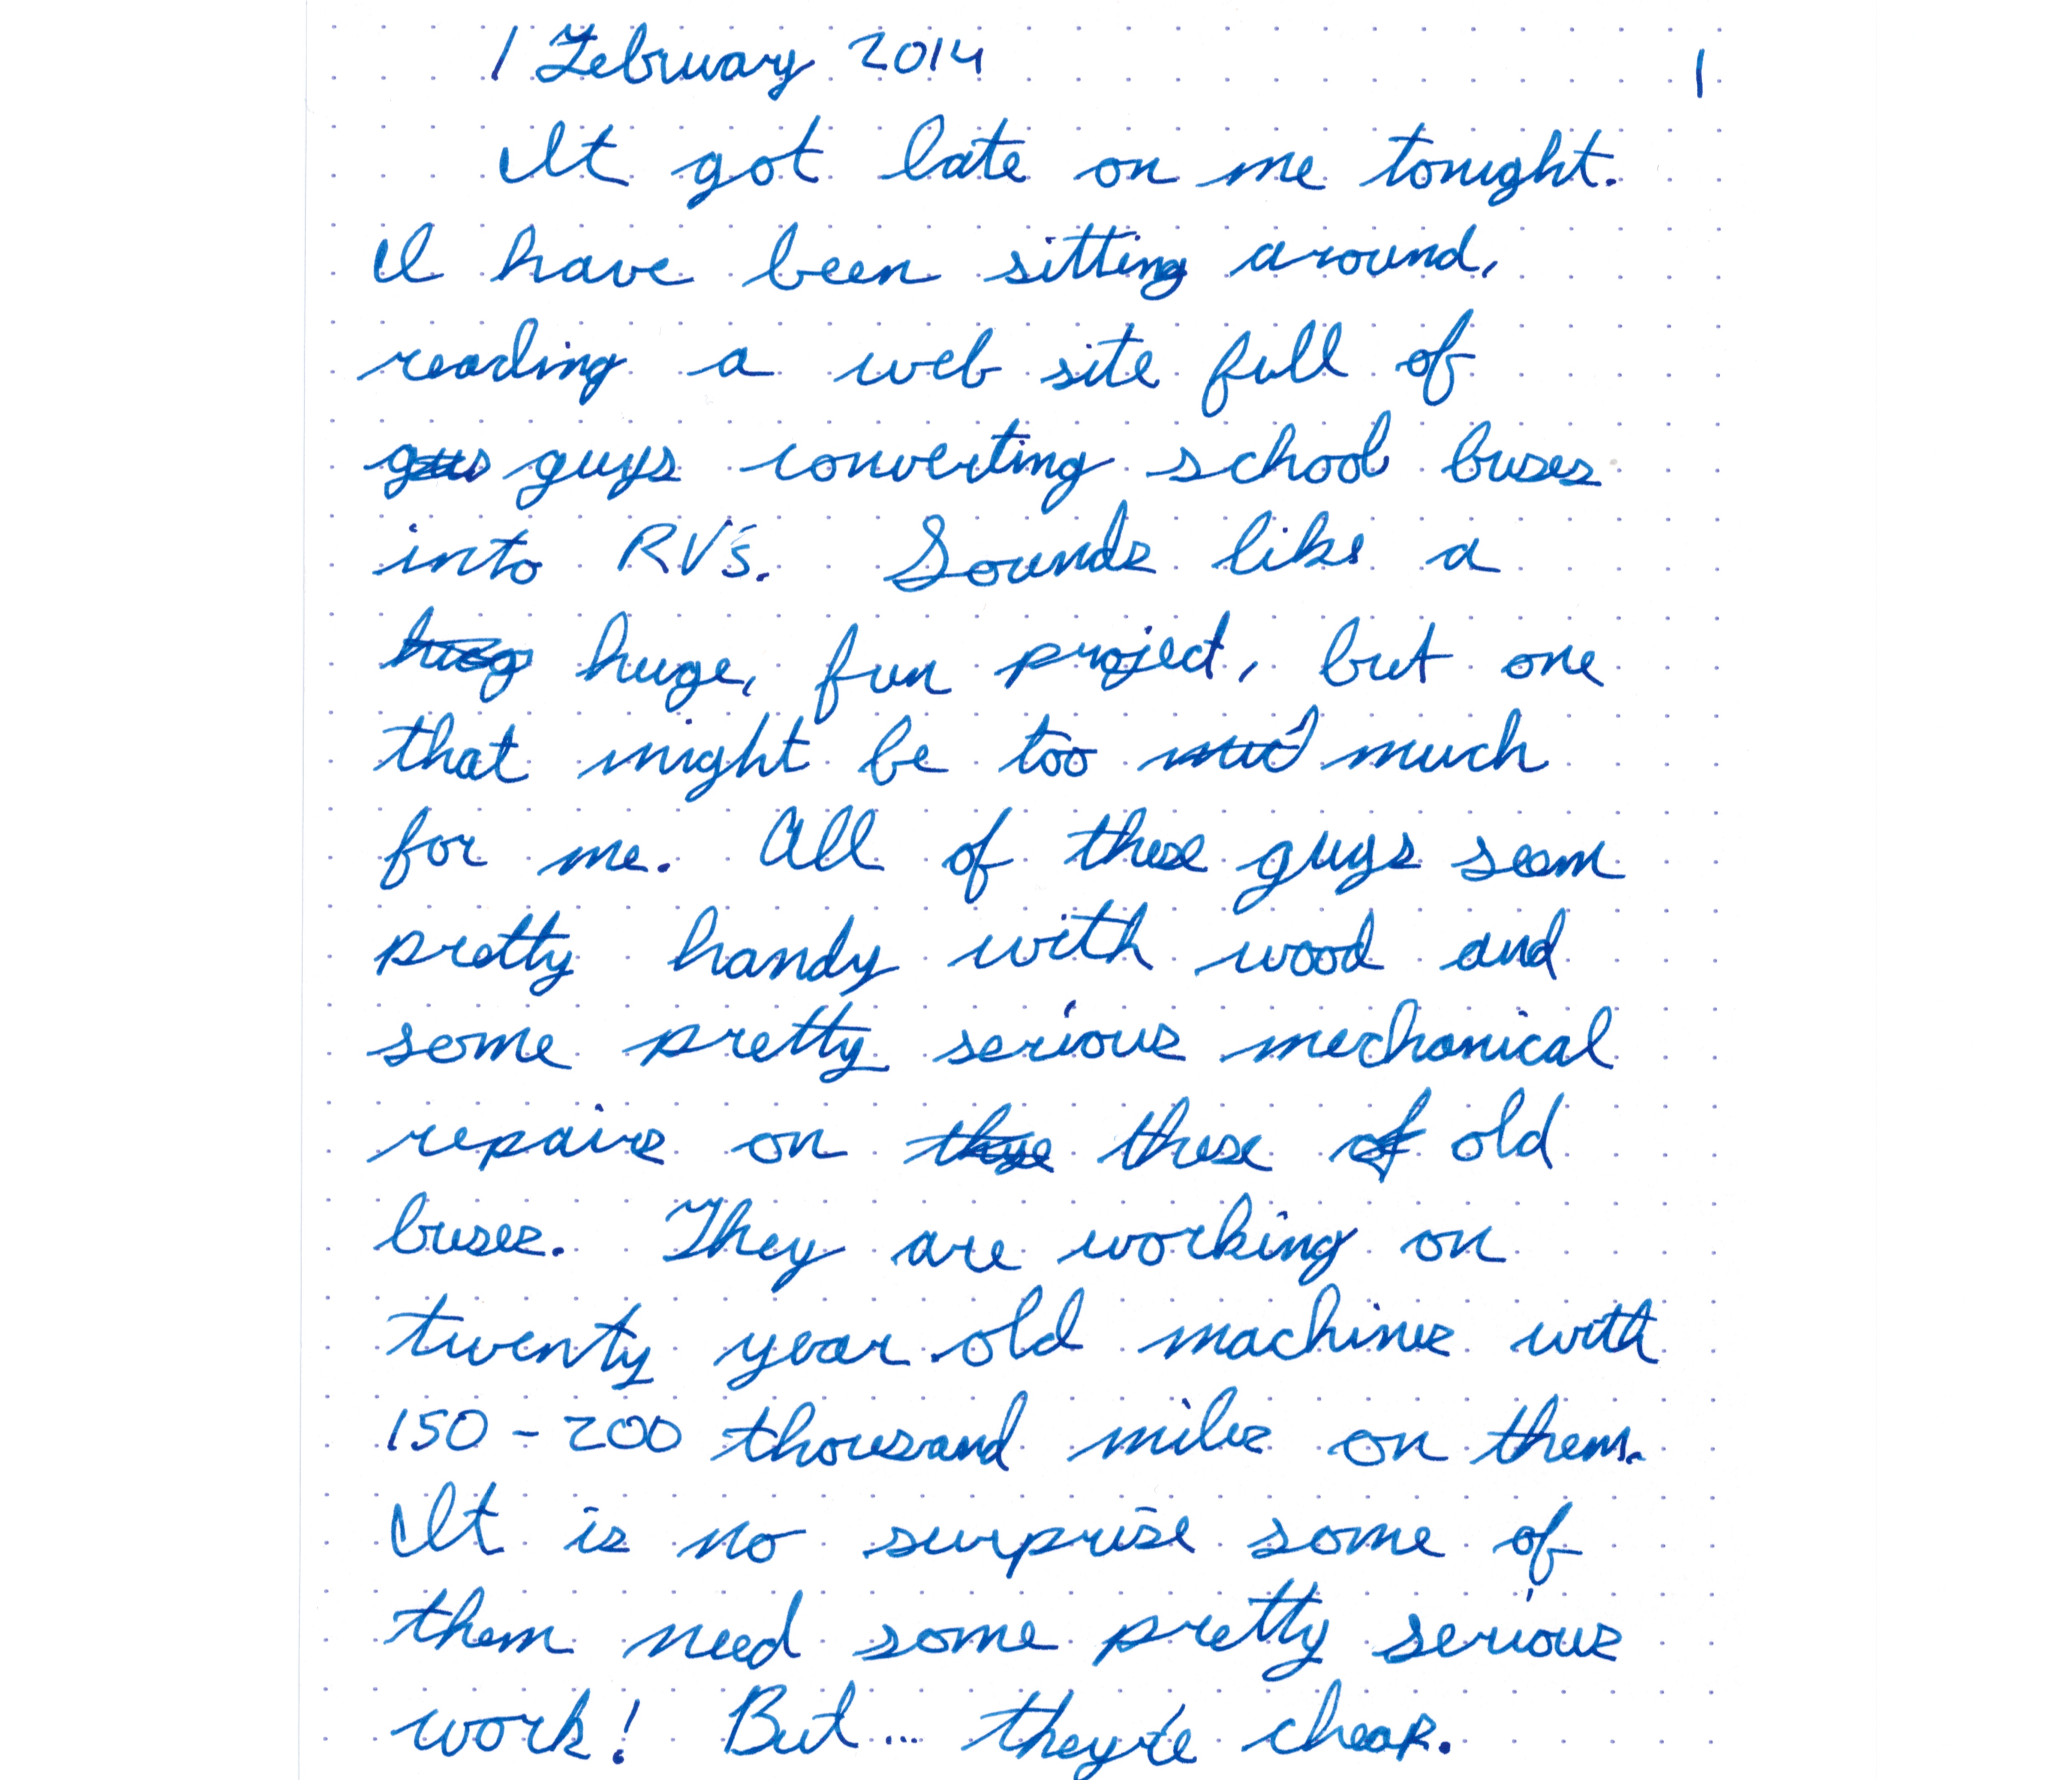 1 February 2014 1
It got late on me tonight.
I have been sitting around,
reading a web site full of
guys converting school buses
into RV's. Sounds like a
hug huge, fun project, but one
that might be too muc much
for me. All of these guys seem
pretty handy with wood and
some pretty serious mechanical
repairs on these of old
buses. They are working on
twenty year old machines with
150-200 thousand miles on them.
It is no surprise some of
them need some pretty serious
work! But... they're cheap.